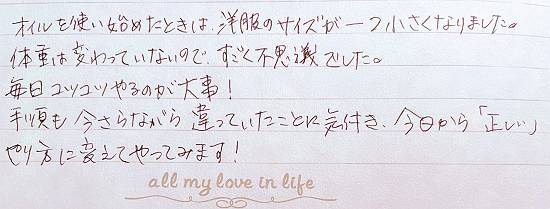 オイルを使い始めたときは、洋服のサイズが一つ小さくなりました。
体重は変わっていないので、すごく不思議でした。
毎日コツコツやるのが大事！
手順も今さらながら違っていたことに気付き、今日から「正しい」
やり方に変えてやってみます！
all my love in life